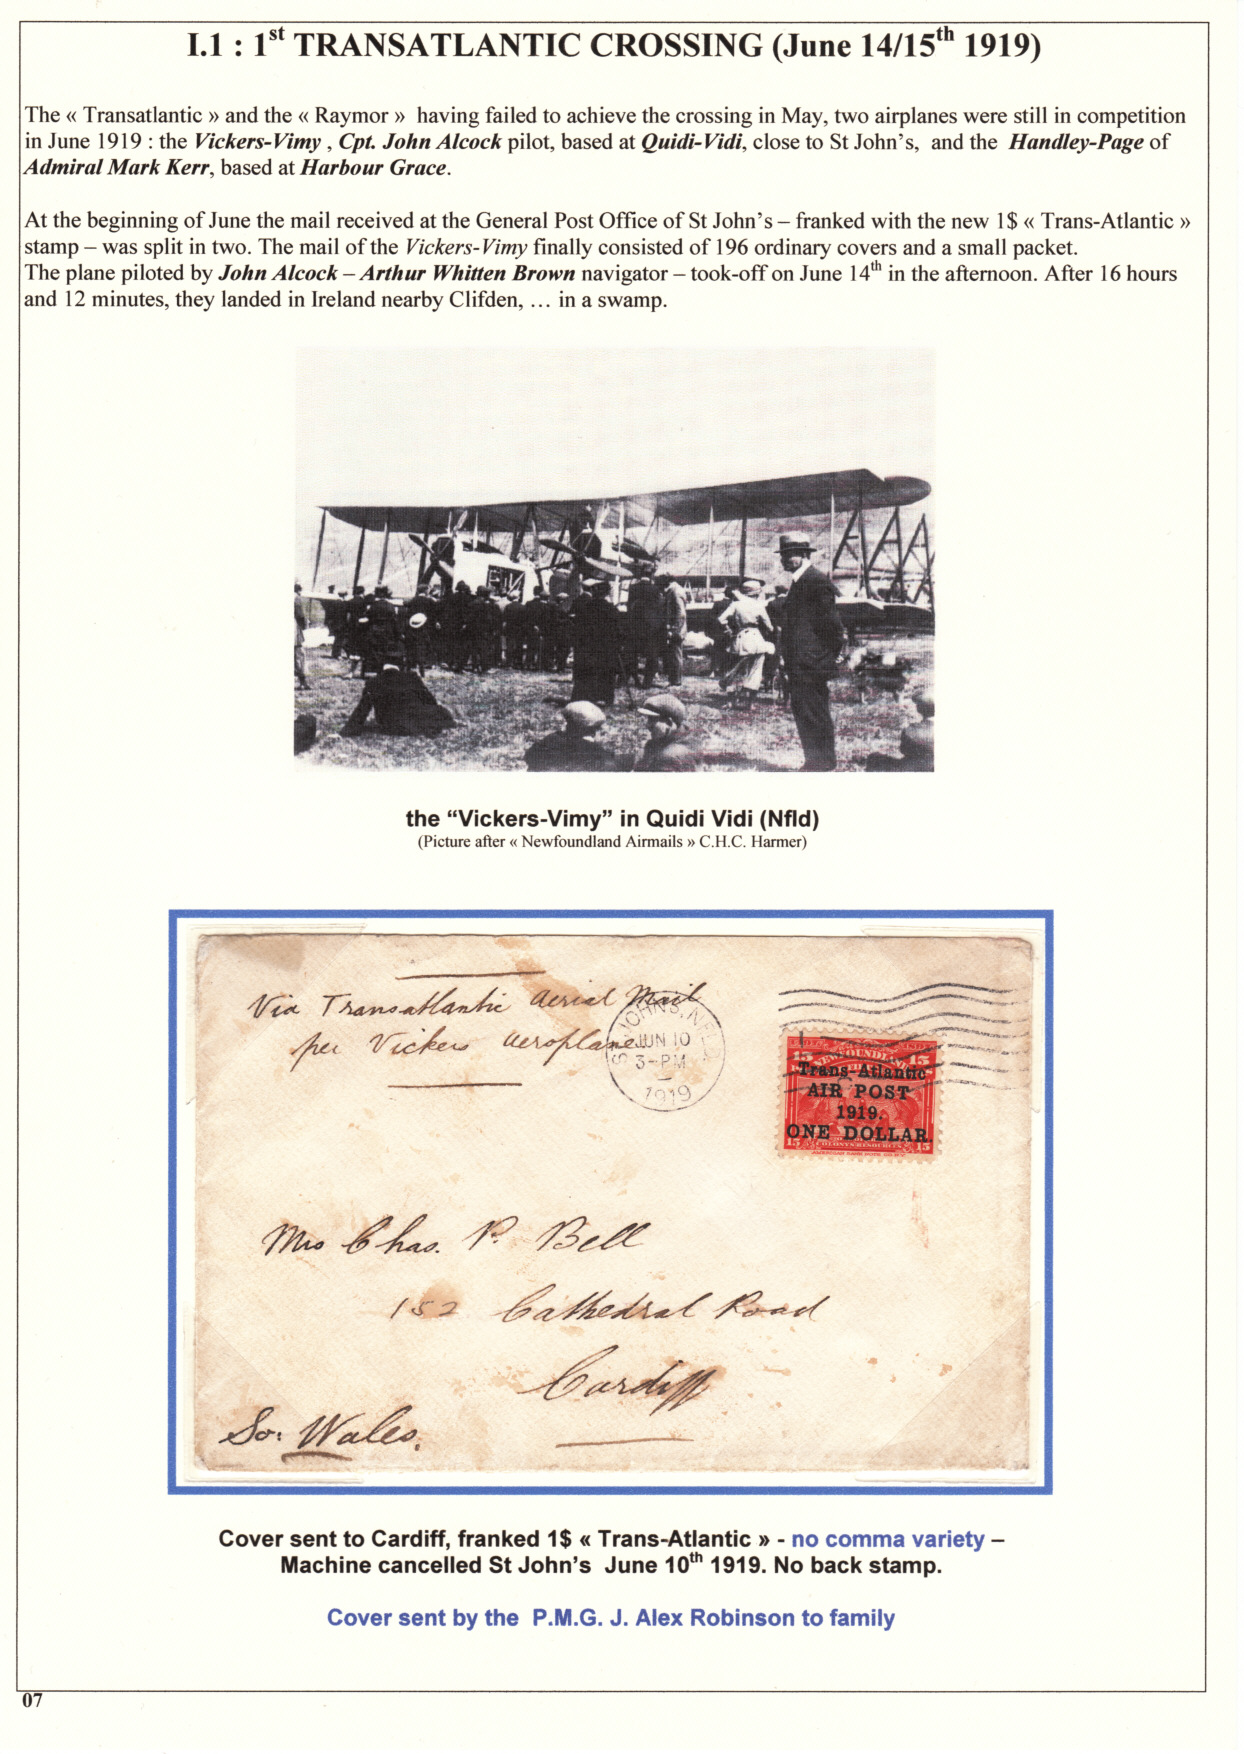 I.1 : 1st TRANSATLANTIC CROSSING (June 14/15th 1919)
The « Transatlantic » and the « Raymor » having failed to achieve the crossing in May, two airplanes were still in competition
in June 1919 : the Vickers-Vimy , Cpt. John Alcock pilot, based at Quidi-Vidi, close to St John's, and the Handley-Page of
Admiral Mark Kerr, based at Harbour Grace.
At the beginning of June the mail received at the General Post Office of St John's – franked with the new 1$ « Trans-Atlantic »
stamp – was split in two. The mail of the Vickers-Vimy finally consisted of 196 ordinary covers and a small packet.
The plane piloted by John Alcock – Arthur Whitten Brown navigator – took-off on June 14th in the afternoon. After 16 hours
and 12 minutes, they landed in Ireland nearby Clifden, … in a swamp.
the "Vickers-Vimy" in Quidi Vidi (Nfld)
(Picture after « Newfoundland Airmails » C.H.C. Harmer)
Via Transatlantic Aerial Mail
per Vickers Aeroplane
ST JOHNS, NFLD
JUN 10
3-PM
1919
15 NEWFOUNDLAND 15
Trans-Atlantic
AIR POST
1919.
ONE DOLLAR.
15 COLONY'S RESOURCES 15
Mrs Chas. P. Bell
152 Cathedral Road
Cardiff
So: Wales.
Cover sent to Cardiff, franked 1$ « Trans-Atlantic » - no comma variety –
Machine cancelled St John's June 10th 1919. No back stamp.
Cover sent by the P.M.G. J. Alex Robinson to family
07